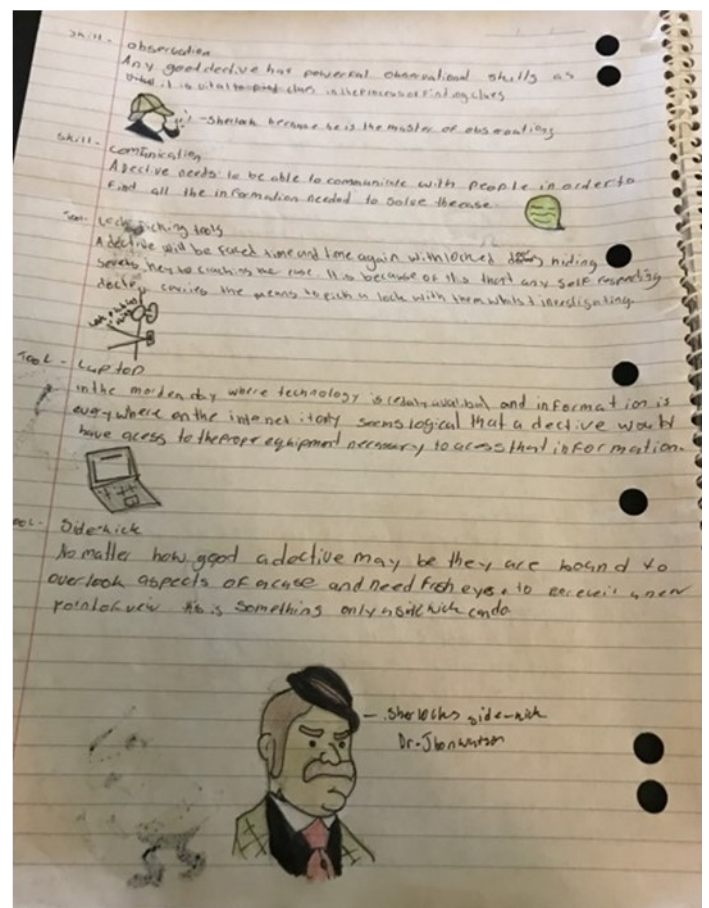 Skill - observation
Any good dective has powerful observational skills as
it is vital to find clues in the process of finding clues
- Sherlock because he is the master of observations
Skill - comunication
A dective needs to be able to communicate with people in order to
find all the information needed to solve the case.
Tool - Lock picking tools
A dective will be faced time and time again with locked hiding
the case. It is because of this that any self respecting
carries the means to pick a lock with them whilst investigating.
Lock picking
Tool - Laptop
in the morden day where technology is and information is
everywhere on the internet it only seems logical that a dective would
have acess to the proper equipment necessary to acess that information.
Tool - Side-kick
No matter how good a dective may be they are bound to
overlook aspects of a case and need fresh eyes to a new
point of veiw this is something only a side kick can do
- Sherlocks side-kick
Dr. Jhon watson